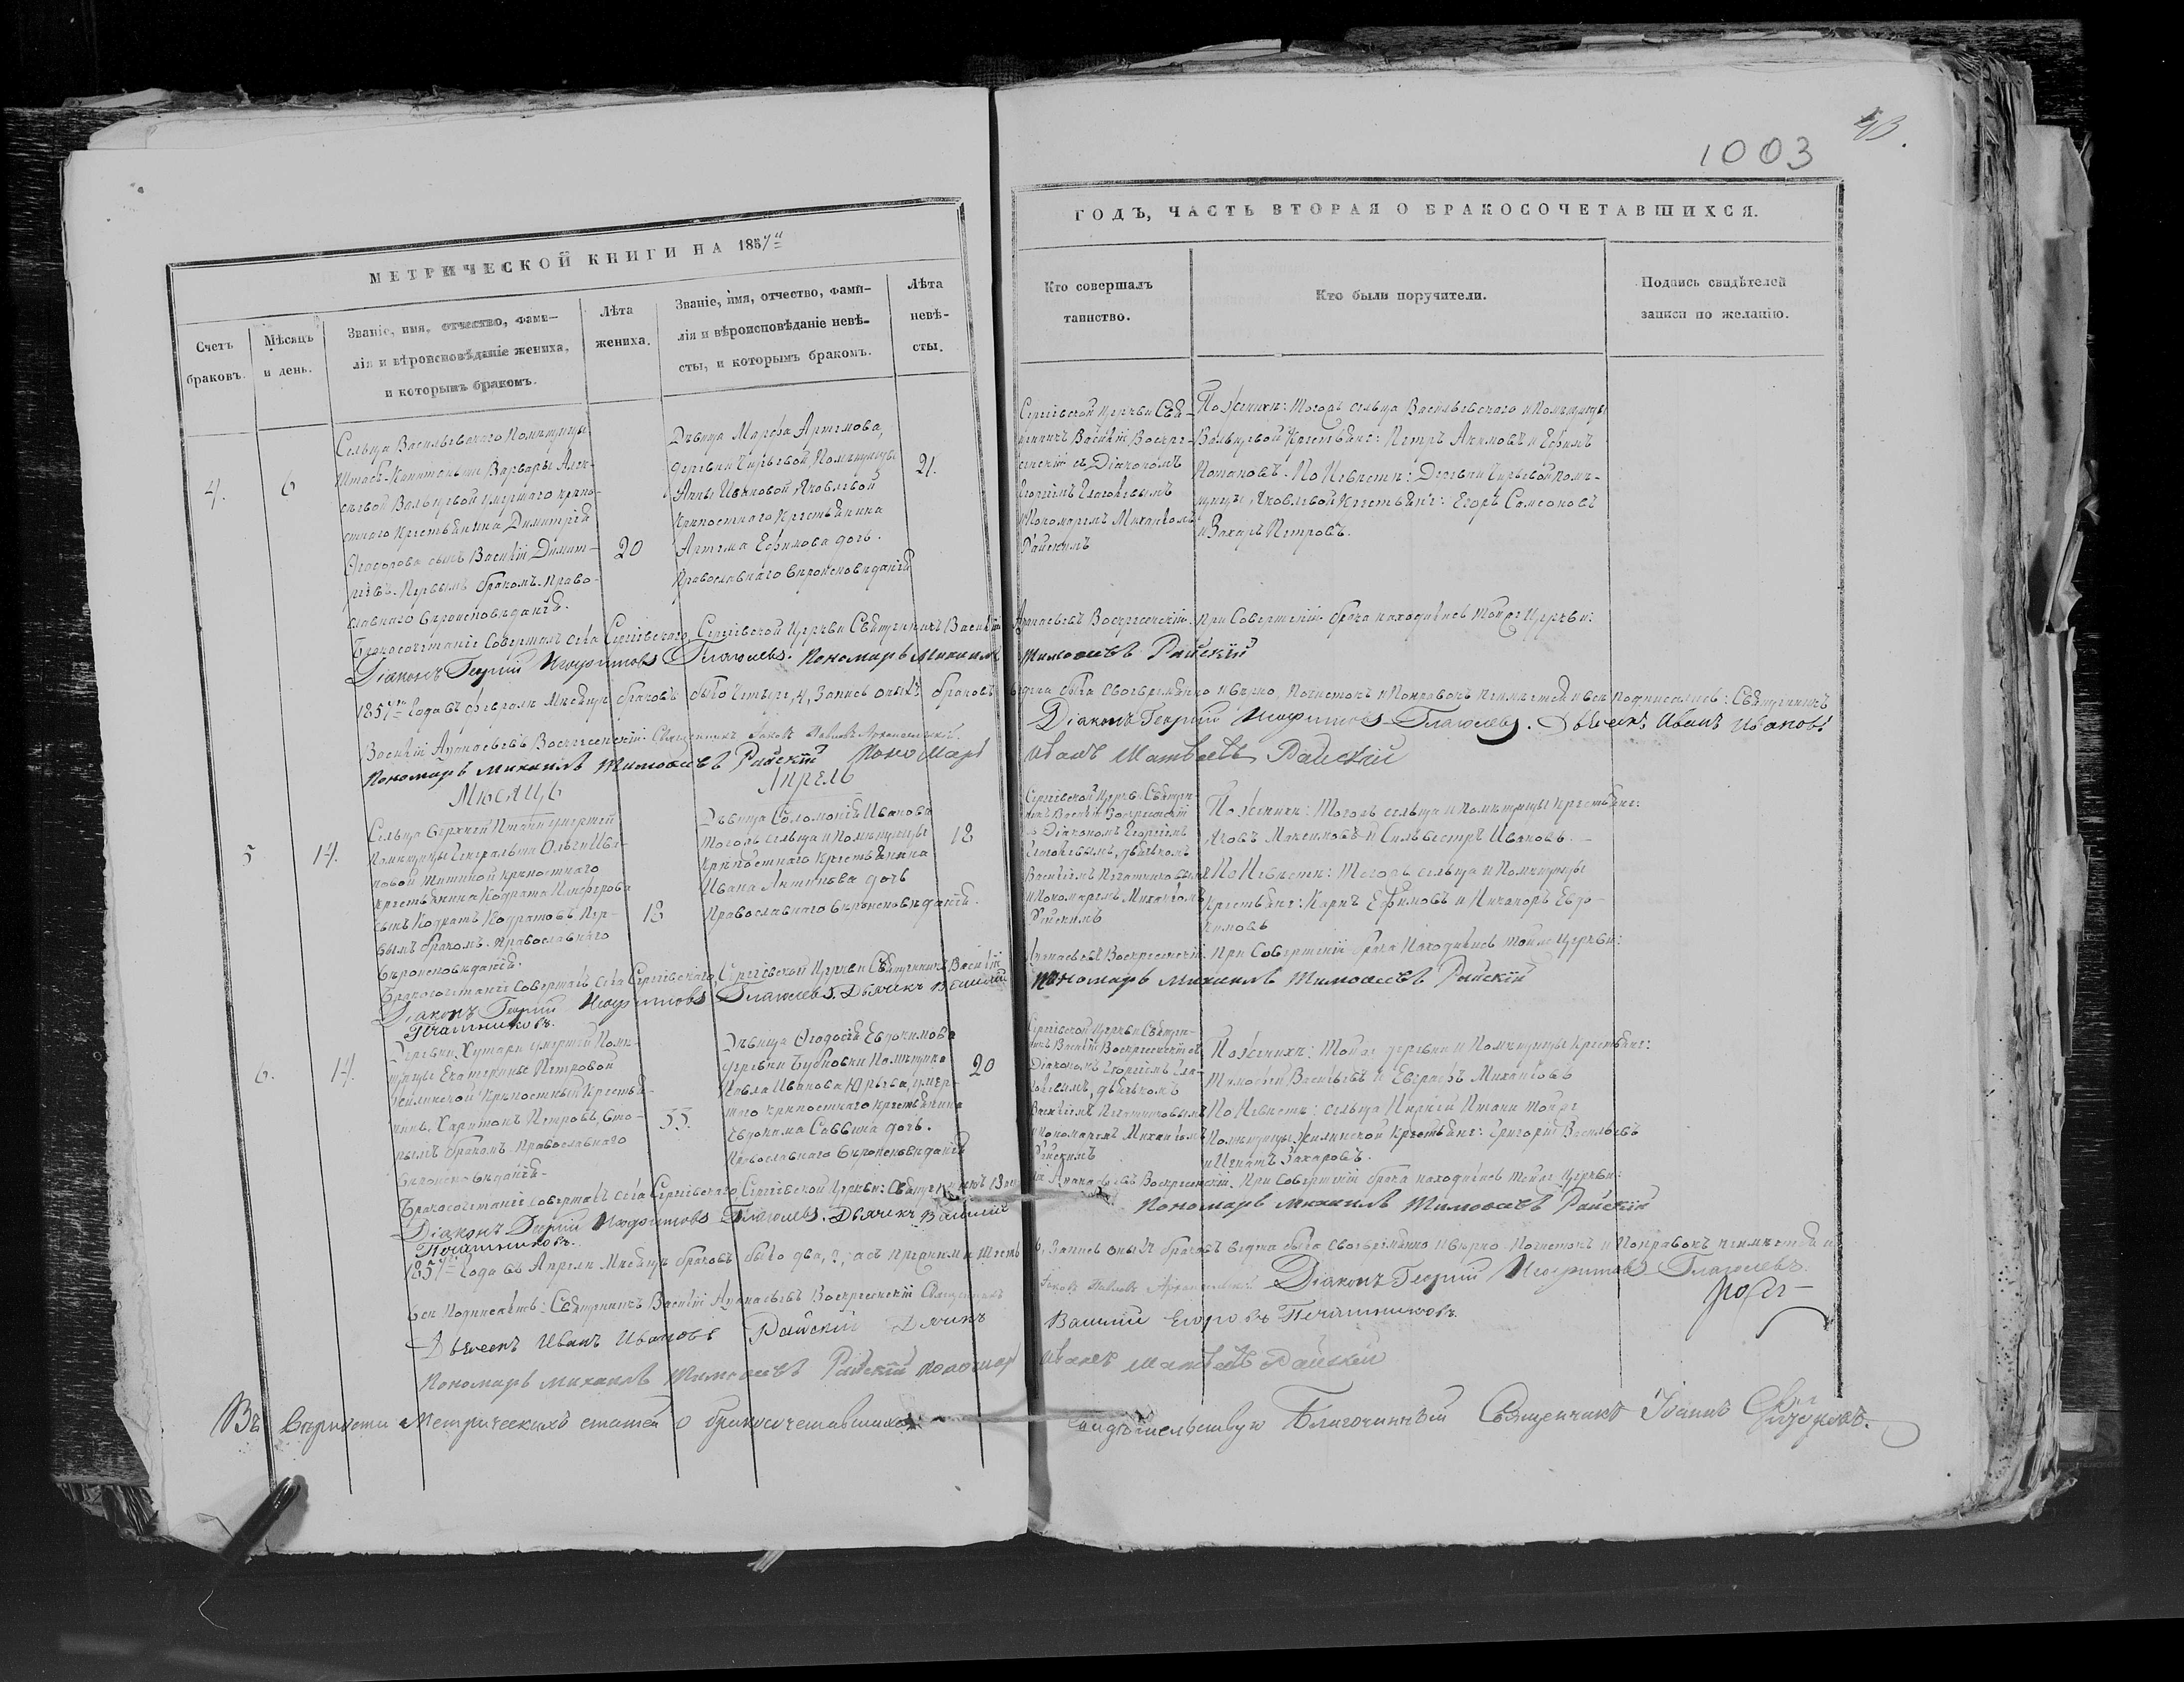 43.
1003
МЕТРИЧЕСКОЙ КНИГИ НА 1857й
ГОДЪ, ЧАСТЬ ВТОРАЯ О БРАКОСОЧЕТАВШИХСЯ.
Счетъ
браковъ.
Мѣсяцъ
и день.
Званіе, имя, отчество, фами-
лія и вѣроисповѣданіе жениха,
и которымъ бракомъ.
Лѣта
жениха.
Званіе, имя, отчество, фами-
лія и вѣроисповѣданіе невѣ-
сты, и которымъ бракомъ.
Лѣта
невѣ-
сты.
Кто совершалъ
таинство.
Кто были поручители.
Подпись свидѣтелей
записи по желанію.
4.
6
Сельца Васильевскаго Помѣщицы
Штабсъ-Капитанши Варвары Алек-
сѣевой умершаго крѣпо-
стнаго Крестьянина Димитрія
Ѳеодорова сынъ Василій Димит-
ріевъ. Первымъ бракомъ. Право-
славнаго вѣроисповѣданія.
20
Дѣвица Марѳа Артемова,
деревни Помѣщицы
Анны Ивановой Яковлевой
Крѣпостнаго Крестьянина
Артема Ефимова дочь.
Православнаго вѣроисповѣданія
21.
Сергіевской Церкви Свя-
щенникъ Василій Воскре-
сенскій съ Діакономъ
Георгіемъ Глаголевымъ
и Пономаремъ Михаиломъ
Райскимъ
По Женихѣ: Тогожъ сельца Васильевскаго и Помѣщицы
Крестьяне: Петръ Акимовъ и Ефимъ
Потаповъ. По Невѣстѣ: Деревни Помѣ-
щицы Яковлевой Крестьяне: Егоръ Самсоновъ
и Захаръ Петровъ.
Бракосочетаніе Совершалъ села Сергіевскаго, Сергіевской Церкви Священникъ Василій Аѳанасьевъ Воскресенскій. При Совершеніи брака находились тойже Церкви:
Діаконъ Георгій Глаголевъ. Пономарь Михаилъ Тимоѳеевъ Райскій
1857го Года въ Февралѣ Мѣсяцѣ браковъ было четыре, 4, Запись оныхъ браковъ ведена была Своевременно и вѣрно, Почистокъ и Поправокъ неимѣется и всѣ подписались: Священникъ
Василій Аѳанасьевъ Воскресенскій. Священникъ Іаковъ Павловъ Діаконъ Георгій Глаголевъ. Дьячекъ Иванъ Ивановъ
Пономарь Михаилъ Тимоѳеевъ Райскій Пономарь Иванъ Матвеевъ Райский
Мѣсяцъ Апрель
5
14.
Сельца Верхней умершей
Помѣщицы Генеральши Ольги Ива-
новой крѣпостнаго
Крестьянина Кодрата
сынъ Кодратъ Кодратовъ. Пер-
вымъ бракомъ. Православнаго
вѣроисповѣданія.
18
Дѣвица Соломонія Иванова
тогожъ сельца и Помѣщицы
Крѣпостнаго крестьянина
Ивана Антипова дочь
Православнаго вѣроисповѣданія.
18
Сергіевской Церкви Священ-
никъ Василій Воскресенскій
съ Діакономъ Георгіемъ
Глаголевымъ, дьячкомъ
Василіемъ Печатниковымъ
и Пономаремъ Михаиломъ
Райскимъ
По Женихѣ: Тогожъ сельца и Помѣщицы Крестьяне:
Яковъ Максимовъ и Сильвестръ Ивановъ.
По Невѣстѣ: Тогожъ сельца и Помѣщицы
Крестьяне: Карпъ Ефимовъ и Никаноръ Евдо-
кимовъ
Бракосочетаніе Совершалъ села Сергіевскаго, Сергіевской Церкви Священникъ Василій Аѳанасьевъ Воскресенскій. При Совершеніи брака Находились тойже Церкви:
Діаконъ Георгій Глаголевъ. Дьячекъ Василій Пономарь Михаилъ Тимоѳеевъ Райскій
Печатниковъ.
6.
14.
Деревни Хутара умершей Помѣ-
щицы Екатерины Петровой
Жилинской Крѣпостный Крестья-
нинъ Харитонъ Петровъ, Вто-
рымъ бракомъ. Православнаго
вѣроисповѣданія.
33.
Дѣвица Ѳеодосія Евдокимова
деревни Бубновки Помѣщика
Павла Иванова Юрьева, умер-
шаго крѣпостнаго крестьянина
Евдокима Саввина дочь.
Православнаго вѣроисповѣданія
20
Сергіевской Церкви Священ-
никъ Василій Воскресенскій съ
Діакономъ Георгіемъ Гла-
голевымъ, дьячкомъ
Василіемъ Печатниковымъ
и Пономаремъ Михаиломъ
Райскимъ
По Женихѣ: Тойже деревни и Помѣщицы Крестьяне:
Тимоѳей Васильевъ и Евграфъ Михайловъ
По Невѣстѣ: сельца тойже
Помѣщицы Жилинской Крестьяне: Григорій Васильевъ
и Игнатъ Захаровъ.
Бракосочетаніе совершалъ села Сергіевскаго, Сергіевской Церкви: Священникъ Василій Аѳанасьевъ Воскресенскій. При Совершеніи брака находились тойже Церкви:
Діаконъ Георгій Глаголевъ. Дьячекъ Василій Пономарь Михаилъ Тимоѳеевъ Райскій
Печатниковъ.
1857го Года въ Апрелѣ Мѣсяцѣ браковъ было два, 2, а съ прежними шесть 6, Запись оныхъ браковъ ведена была Своевременно и вѣрно. Почистокъ и Поправокъ неимѣется и
всѣ Подписались: Священникъ Василій Аѳанасьевъ Воскресенскій Священникъ Іаковъ Павловъ Діаконъ Георгій Глаголевъ.
Дьячекъ Иванъ Ивановъ Райский Дьячекъ Василій Егоровъ Печатниковъ.
Пономарь Михаилъ Тимоѳеевъ Райскій Пономарь Иванъ Матвеевъ Райский
Въ вѣрности Метрическихъ статей о бракосочетавшихся свидѣтельствую Благочинный Священникъ Іоаннъ